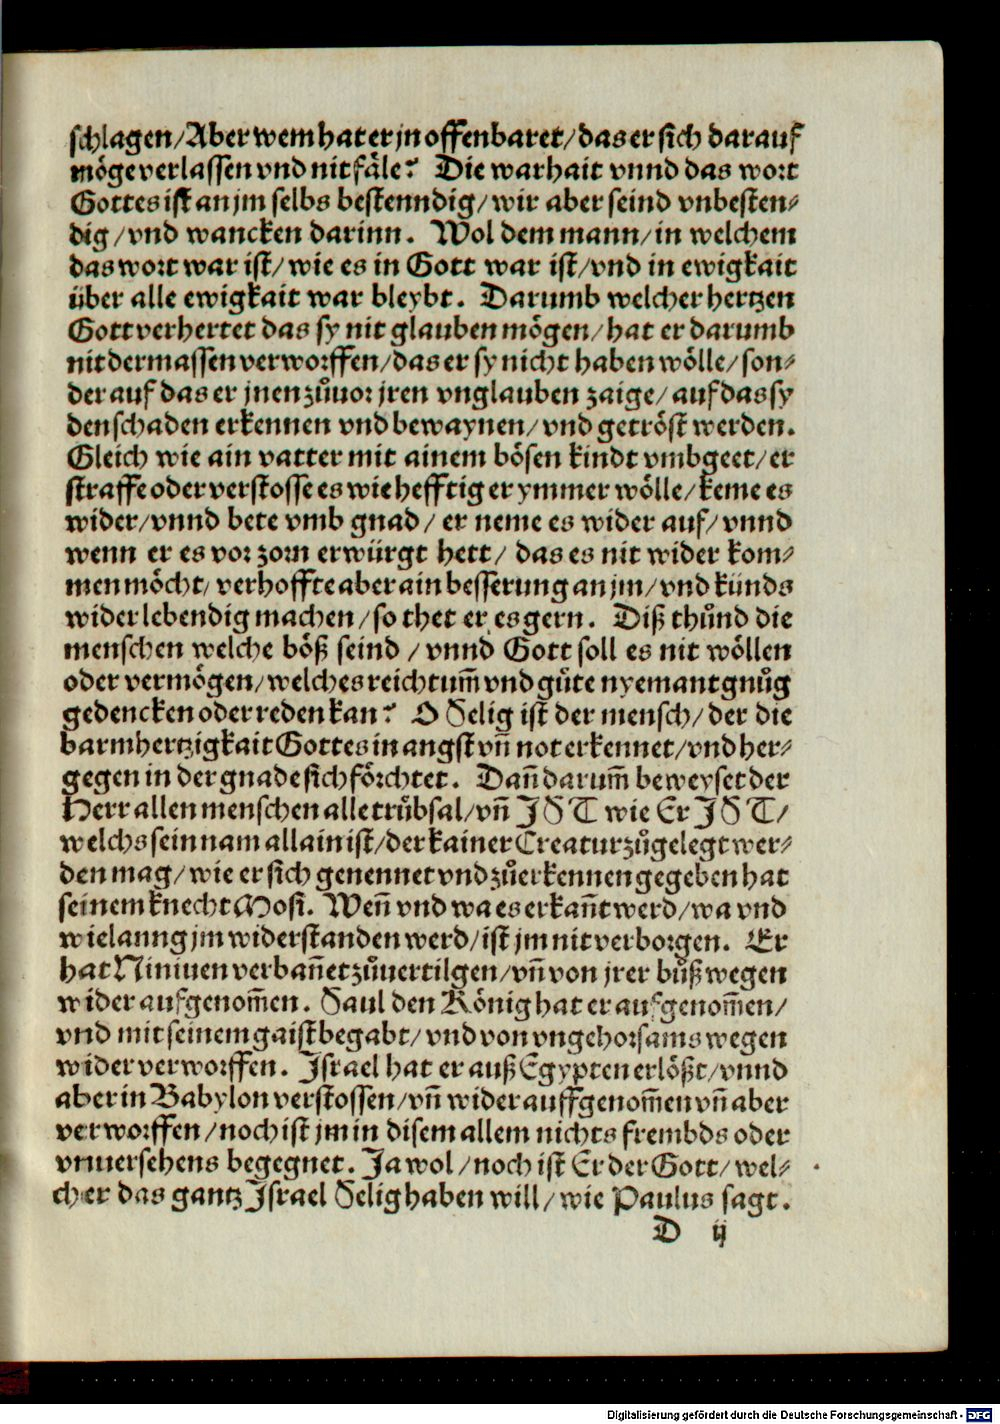 schlagen/Aber wem hat er jn offenbaret/das er sich darauf
möge verlassen vnd nit fäle? Die warhait vnnd das wort
Gottes ist an jm selbs bestenndig/wir aber seind vnbesten⸗
dig/vnd wancken darinn. Wol dem mann/in welchem
das wort war ist/wie es in Gott war ist/vnd in ewigkait
über alle ewigkait war bleybt. Darumb welcher hertzen
Gott verhertet das sy nit glauben mögen/hat er darumb
nit dermassen verworffen/das er sy nicht haben wölle/son⸗
der auf das er jnen zůuor jren vnglauben zaige/auf das sy
den schaden erkennen vnd bewaynen/vnd getröst werden.
Gleich wie ain vatter mit ainem bösen kindt vmbgeet/er
straffe oder verstosse es wie hefftig er ymmer wölle/keme es
wider/vnnd bete vmb gnad/er neme es wider auf/vnnd
wenn er es vor zorn erwürgt hett/das es nit wider kom⸗
men möcht/verhoffte aber ain besserung an jm/vnd künds
wider lebendig machen/so thet er es gern. Diß thůnd die
menschen welche böß seind/vnnd Gott soll es nit wöllen
oder vermögen/welches reichtum̄ vnd gůte nyemant gnůg
gedencken oder reden kan? O Selig ist der mensch/der die
barmhertzigkait Gottes in angst vn̄ not erkennet/vnd her⸗
gegen in der gnade sich förchtet. Dan̄ darum̄ beweyset der
Herr allen menschen alle trůbsal/vn̄ JST wie Er JST/
welchs sein nam allain ist/der kainer Creatur zůgelegt wer⸗
den mag/wie er sich genennet vnd zůerkennen gegeben hat
seinem knecht Mosi. Wen̄ vnd wa es erkan̄t werd/wa vnd
wie lanng jm widerstanden werd/ist jm nit verborgen. Er
hat Niniuen verban̄et zůuertilgen/vn̄ von jrer bůß wegen
wider aufgenom̄en. Saul den König hat er aufgenom̄en/
vnd mit seinem gaist begabt/vnd von vngehorsams wegen
wider verworffen. Israel hat er auß Egypten erlößt/vnnd
aber in Babylon verstossen/vn̄ wider auffgenom̄en vn̄ aber
verworffen/noch ist jm in disem allem nichts frembds oder
vnuersehens begegnet. Ja wol/noch ist Er der Gott/wel⸗
cher das gantz Israel Selig haben will/wie Paulus sagt.
D ij
Digitalisierung gefördert durch die Deutsche Forschungsgemeinschaft - DFG